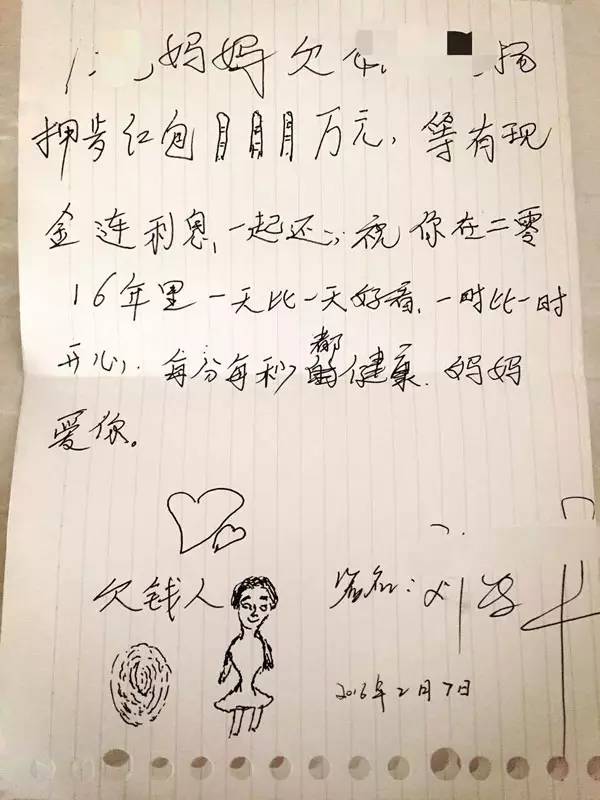 妈妈欠
押岁红包 万元，等有现
金连利息，一起还；祝你在二零
16年里一天比一天好看，一时比一时
开心，每分每秒都健康．妈妈
爱你。
欠钱人
签名：刘
2016年2月7日